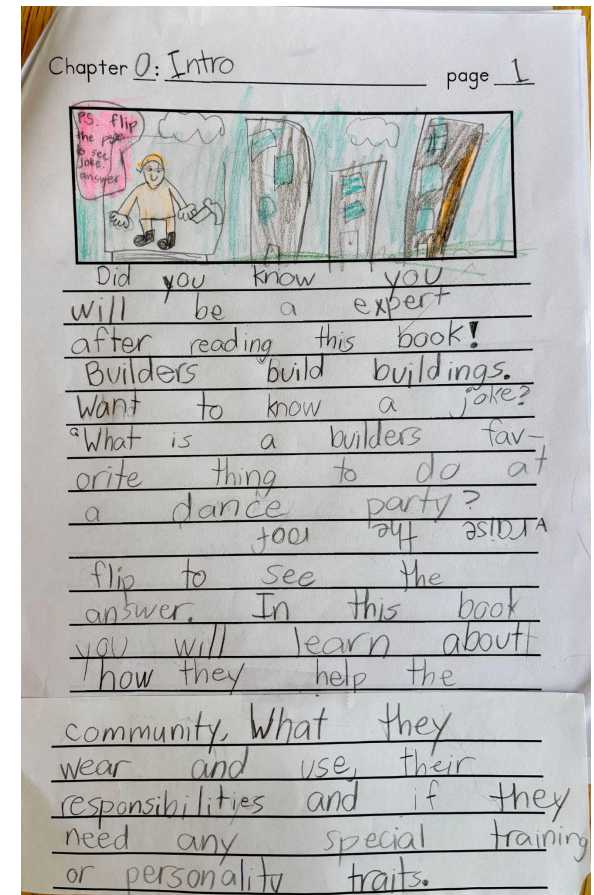 Chapter 0: Intro page 1
P.S. flip
the page
to see
joke
answer
Did you know you
will be a expert
after reading this book!
Builders build buildings.
Want to know a joke?
Q What is a builders fav-
orite thing to do at
a dance party?
A raise the roof
flip to see the
answer. In this book
you will learn about
how they help the
community, What they
wear and use, their
responsibilities and if they
need any special training
or personality traits.